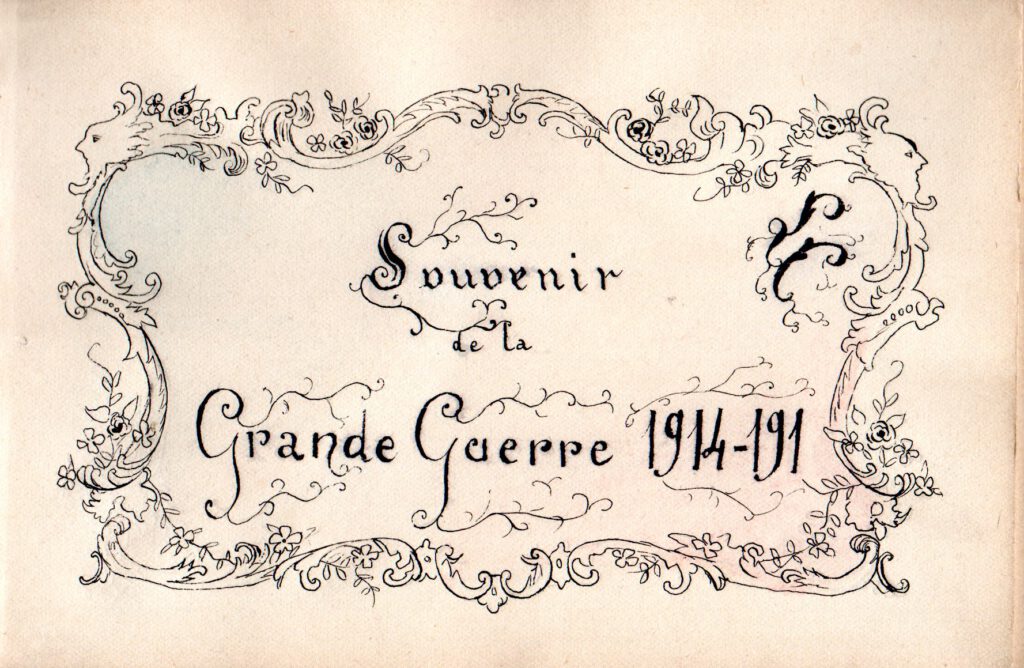 Souvenir
de la
Grande Guerre 1914-191